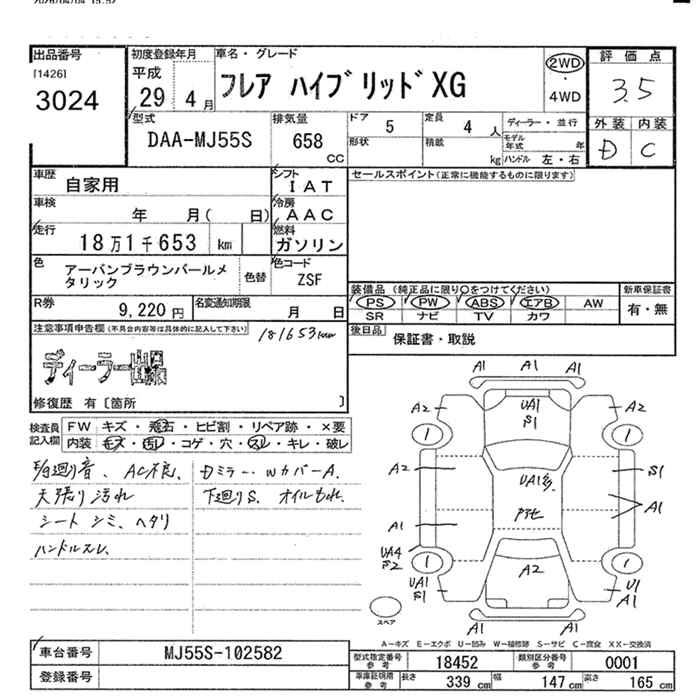 出品番号
[1426]
3024
初度登録年月
平成
29 年 4 月
車名・グレード
フレア ハイブリッドXG
2WD
・
4WD
評価点
3.5
外装 内装
D C
型式
DAA-MJ55S
排気量
658
CC
ドア 5
定員 4 人
形状
積載 kg
ディーラー・並行
モデル年式 年
ハンドル 左・右
車歴
自家用
シフト
IAT
セールスポイント(正常に機能するものに限ります)
車検
年 月( 日)
冷房
AAC
走行
18万1千653 km
燃料
ガソリン
色
アーバンブラウンパールメ
タリック
色替
色コード
ZSF
装備品(純正品に限り○をつけてください)
PS PW ABS エアB AW
SR ナビ TV カワ
新車保証書
有・無
R券
9,220円
名変通知期限
月 日
後日品
保証書・取説
注意事項申告欄(不具合内容等は具体的に記入して下さい)
181653km
ディーラー出品
修復歴 有〔箇所 〕
検査員
記入欄
FW キズ・飛石・ヒビ割・リペア跡・×要
内装 キズ・汚れ・コゲ・穴・スレ・キレ・破レ
AC不良、
Dミラー、WカバーA、
天張り汚れ
下廻りS、オイルもれ、
シート シミ、ヘタリ
ハンドルスレ、
A1 A1 A1
A2 UA1 A2
S1
1 1
A2 UA1 S1
A1 A1
UA4
S2
1 1
UA1 A2 U1
S1 A1
スペア
A1 A1
A-キズ E-エクボ U-凹み W-補修跡 S-サビ C-腐食 XX-交換済
車台番号
MJ55S-102582
登録番号
型式指定番号
参考
18452
類別区分番号
参考
0001
車庫証明用
参考
長さ 339 cm
幅 147 cm
高さ 165 cm